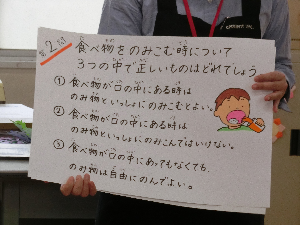 第2問
食べ物をのみこむ時について
3つの中で正しいものはどれでしょう
① 食べ物が口の中にある時は
のみ物といっしょにのみこむとよい。
② 食べ物が口の中にある時は
のみ物といっしょにのみこんではいけない。
③ 食べ物が口の中にあってもなくても、
のみ物は自由にのんでよい。